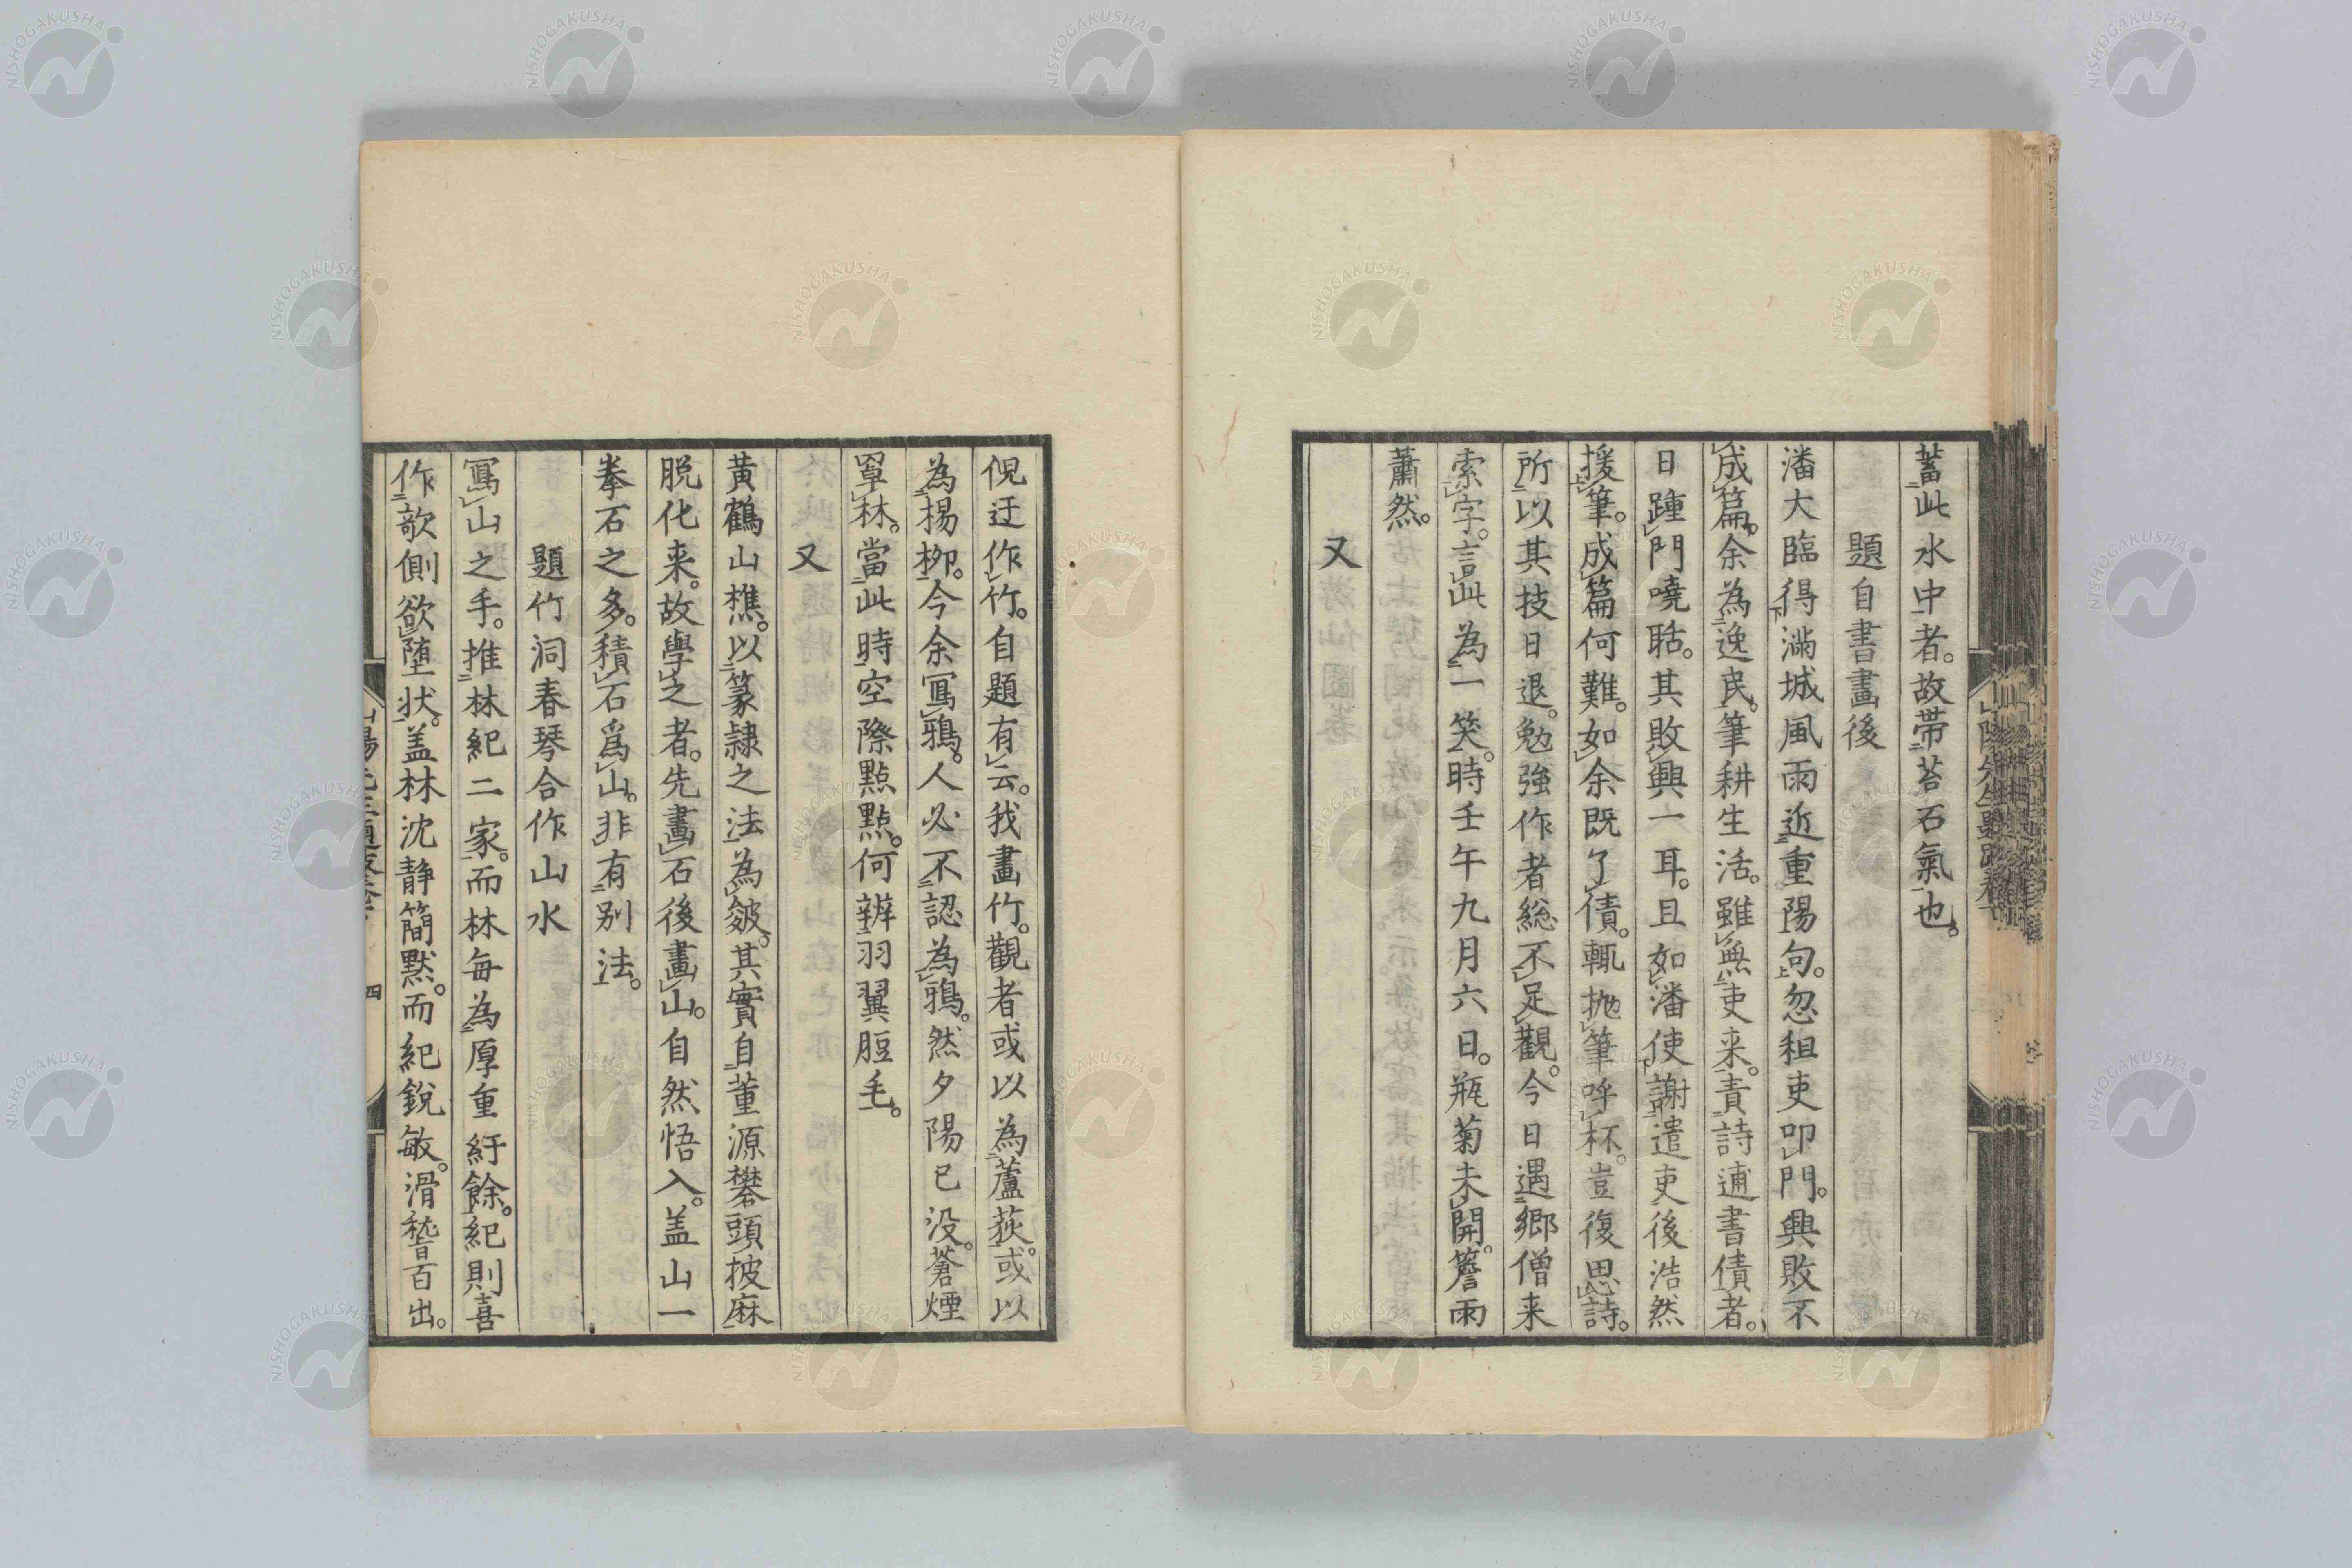 蓄此水中者。故帯苔石氣也。
題自書畫後
潘大臨得滿城風雨近重陽句。忽租吏叩門。興敗不
成篇。余為逸民。筆耕生活。雖無吏来。責詩逋書債者。
日踵門嘵聒。其敗興一耳。且如潘使謝遣吏後浩然
援筆。成篇何難。如余既了債。輒抛筆呼杯。豈復思詩。
所以其技日退。勉強作者総不足觀。今日遇郷僧来
索字。言此為一笑。時壬午九月六日。瓶菊未開。簷雨
蕭然。
又
倪迂作竹。自題有云。我畫竹。觀者或以為蘆荻。或以
為楊柳。今余冩鴉。人必不認為鴉。然夕陽已没。蒼煙
罩林。當此時空際點點。何辨羽翼脰毛。
又
黄鶴山樵。以篆隷之法為皴。其實自董源礬頭披麻
脱化来。故學之者。先畫石後畫山。自然悟入。盖山一
拳石之多。積石爲山。非有別法。
題竹洞春琴合作山水
冩山之手。推林紀二家。而林毎為厚重紆餘。紀則喜
作欹側欲堕状。盖林沈静簡默。而紀鋭敏。滑稽百出。
四
NISHOGAKUSHA